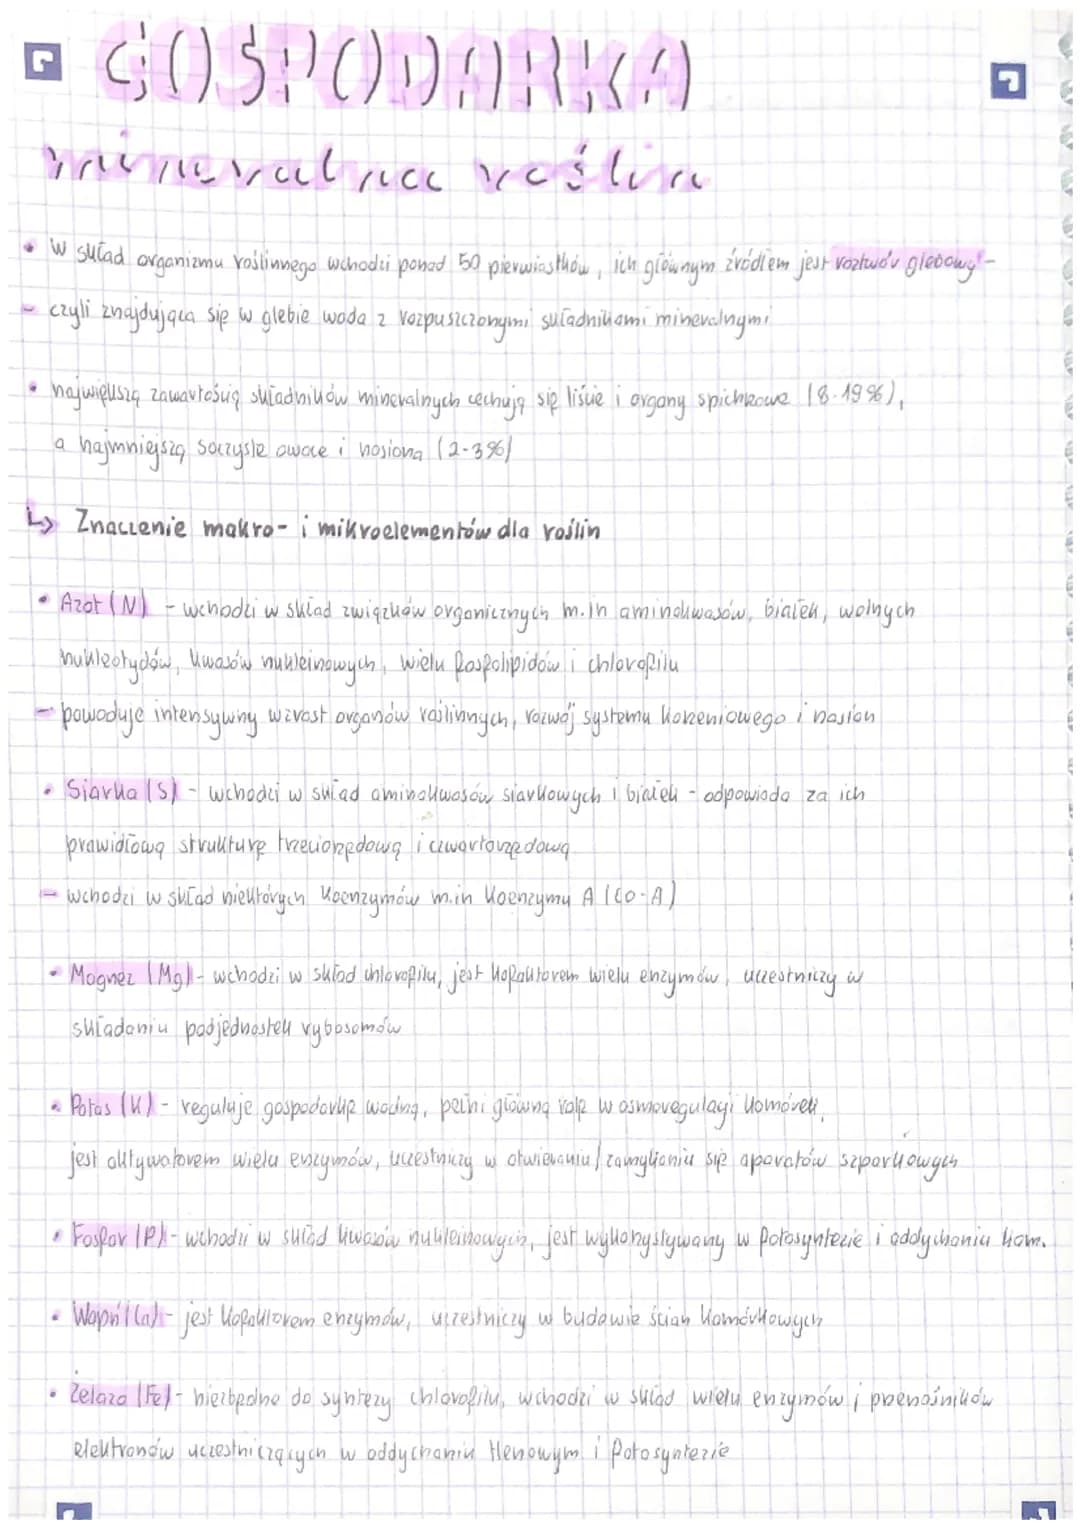 GOSPODARKA
mineralna roślin
• W skład organizmu roślinnego wchodzi ponad 50 pierwiastków, ich głównym źródłem jest roztwór glebowy -
- czyli znajdująca się w glebie woda z rozpuszczonymi składnikami mineralnymi
• największą zawartością składników mineralnych cechują się liście i organy spichrzowe (8-19%),
a najmniejszą soczyste owoce i nasiona (2-3%)
↳ Znaczenie makro- i mikroelementów dla roślin
• Azot (N) - wchodzi w skład związków organicznych m.in aminokwasów, białek, wolnych
nukleotydów, kwasów nukleinowych, wielu fosfolipidów i chlorofilu
- powoduje intensywny wzrost organów roślinnych, rozwój systemu korzeniowego i nasion
• Siarka (S) - wchodzi w skład aminokwasów siarkowych i białek - odpowiada za ich
prawidłową strukturę trzeciorzędową i czwartorzędową
- wchodzi w skład niektórych koenzymów m.in koenzymu A (CO-A)
• Magnez (Mg) - wchodzi w skład chlorofilu, jest kofaktorem wielu enzymów, uczestniczy w
składaniu podjednostek rybosomów
• Potas (K) - reguluje gospodarkę wodną, pełni główną rolę w osmoregulacji komórek,
jest aktywatorem wielu enzymów, uczestniczy w otwieraniu/zamykaniu się aparatów szparkowych
• Fosfor (P) - wchodzi w skład kwasów nukleinowych, jest wykorzystywany w fotosyntezie i oddychaniu kom.
• Wapń (Ca) - jest kofaktorem enzymów, uczestniczy w budowie ścian komórkowych
• Żelazo (Fe) - niezbędne do syntezy chlorofilu, wchodzi w skład wielu enzymów i przenośników
elektronów uczestniczących w oddychaniu tlenowym i fotosyntezie